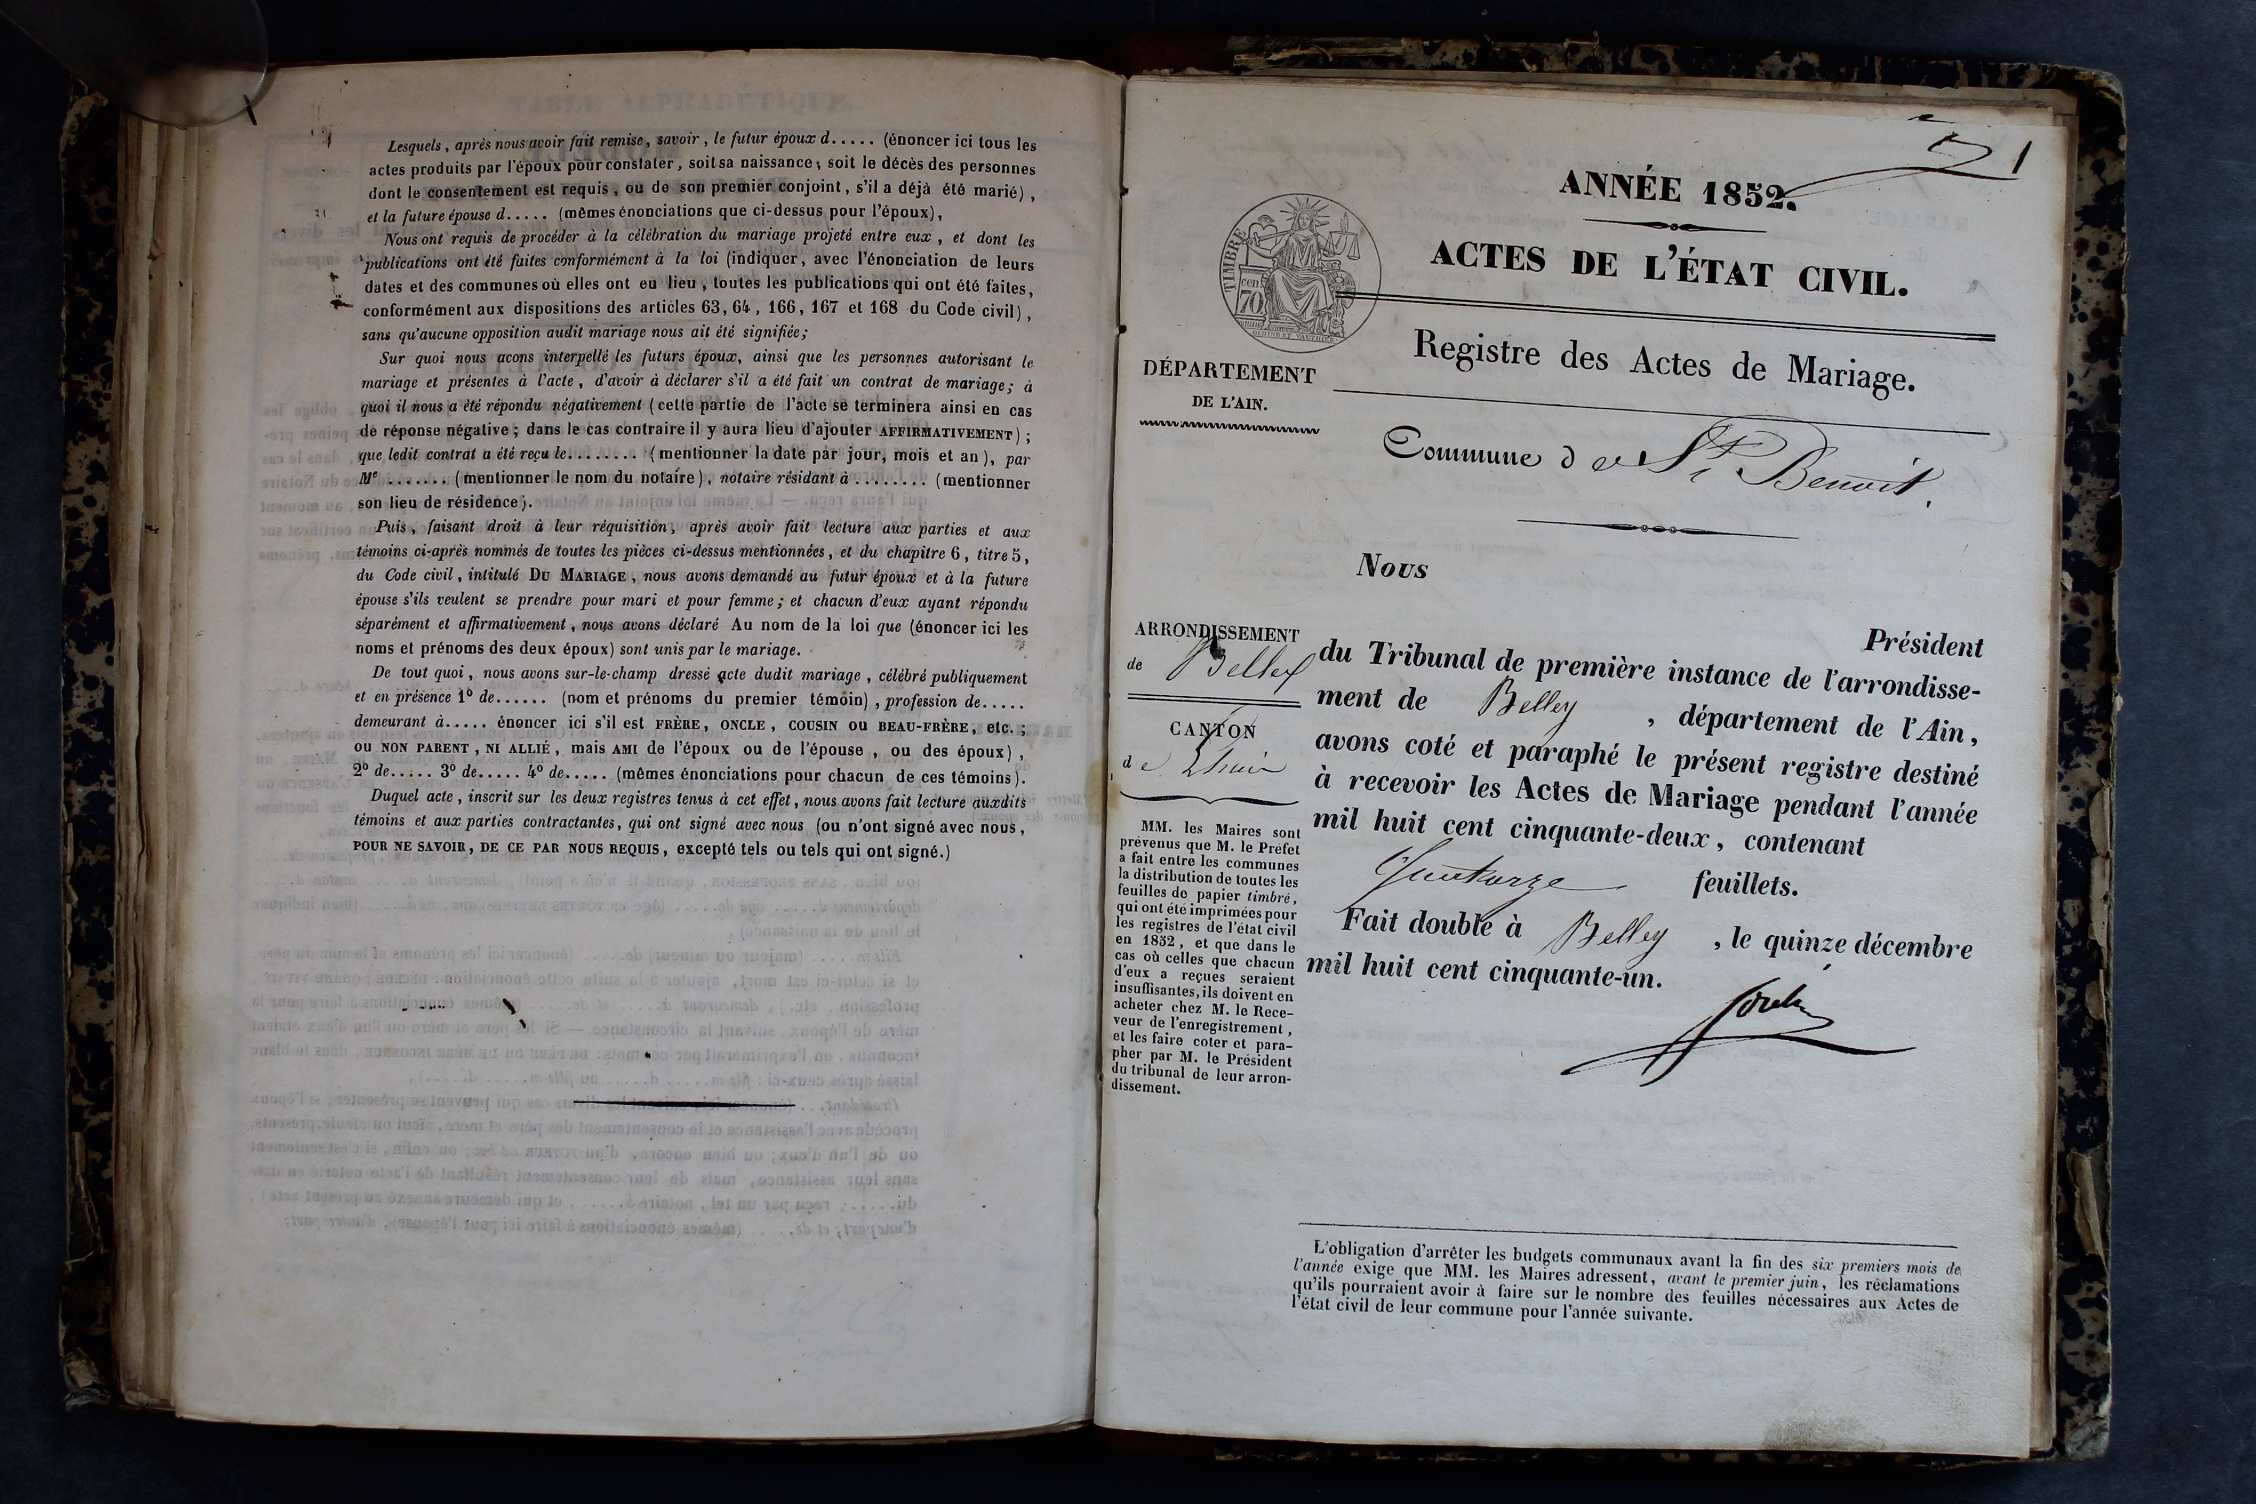 Lesquels, après nous avoir fait remise, savoir, le futur époux d..... (énoncer ici tous les
actes produits par l'époux pour constater, soit sa naissance, soit le décès des personnes
dont le consentement est requis, ou de son premier conjoint, s'il a déjà été marié),
et la future épouse d..... (mêmes énonciations que ci-dessus pour l'époux),
Nous ont requis de procéder à la célébration du mariage projeté entre eux, et dont les
publications ont été faites conformément à la loi (indiquer, avec l'énonciation de leurs
dates et des communes où elles ont eu lieu, toutes les publications qui ont été faites,
conformément aux dispositions des articles 63, 64, 166, 167 et 168 du Code civil),
sans qu'aucune opposition audit mariage nous ait été signifiée;
Sur quoi nous avons interpellé les futurs époux, ainsi que les personnes autorisant le
mariage et présentes à l'acte, d'avoir à déclarer s'il a été fait un contrat de mariage; à
quoi il nous a été répondu négativement (cette partie de l'acte se terminera ainsi en cas
de réponse négative; dans le cas contraire il y aura lieu d'ajouter AFFIRMATIVEMENT);
que ledit contrat a été reçu le........ (mentionner la date par jour, mois et an), par
Me ....... (mentionner le nom du notaire), notaire résidant à ........ (mentionner
son lieu de résidence).
Puis, faisant droit à leur réquisition, après avoir fait lecture aux parties et aux
témoins ci-après nommés de toutes les pièces ci-dessus mentionnées, et du chapitre 6, titre 5,
du Code civil, intitulé DU MARIAGE, nous avons demandé au futur époux et à la future
épouse s'ils veulent se prendre pour mari et pour femme; et chacun d'eux ayant répondu
séparément et affirmativement, nous avons déclaré Au nom de la loi que (énoncer ici les
noms et prénoms des deux époux) sont unis par le mariage.
De tout quoi, nous avons sur-le-champ dressé acte dudit mariage, célébré publiquement
et en présence 1º de...... (nom et prénoms du premier témoin), profession de.....
demeurant à..... énoncer ici s'il est FRÈRE, ONCLE, COUSIN OU BEAU-FRÈRE, etc.;
OU NON PARENT, NI ALLIÉ, mais AMI de l'époux ou de l'épouse, ou des époux),
2º de..... 3º de..... 4º de..... (mêmes énonciations pour chacun de ces témoins).
Duquel acte, inscrit sur les deux registres tenus à cet effet, nous avons fait lecture auxdits
témoins et aux parties contractantes, qui ont signé avec nous (ou n'ont signé avec nous,
POUR NE SAVOIR, DE CE PAR NOUS REQUIS, excepté tels ou tels qui ont signé.)
1
ANNÉE 1852.
ACTES DE L'ÉTAT CIVIL.
TIMBRE
cen 70
Registre des Actes de Mariage.
DÉPARTEMENT
DE L'AIN.
Commune de St Benoit.
Nous
Président
ARRONDISSEMENT
de Belley
CANTON
de Lhuis
du Tribunal de première instance de l'arrondisse-
ment de Belley, département de l'Ain,
avons coté et paraphé le présent registre destiné
à recevoir les Actes de Mariage pendant l'année
mil huit cent cinquante-deux, contenant
feuillets.
Fait double à Belley, le quinze décembre
mil huit cent cinquante-un.
MM. les Maires sont
prévenus que M. le Préfet
a fait entre les communes
la distribution de toutes les
feuilles de papier timbré,
qui ont été imprimées pour
les registres de l'état civil
en 1852, et que dans le
cas où celles que chacun
d'eux a reçues seraient
insuffisantes, ils doivent en
acheter chez M. le Rece-
veur de l'enregistrement,
et les faire coter et para-
pher par M. le Président
du tribunal de leur arron-
dissement.
L'obligation d'arrêter les budgets communaux avant la fin des six premiers mois de
l'année exige que MM. les Maires adressent, avant le premier juin, les réclamations
qu'ils pourraient avoir à faire sur le nombre des feuilles nécessaires aux Actes de
l'état civil de leur commune pour l'année suivante.